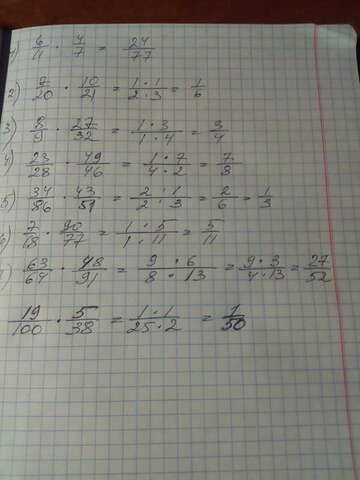 1) 6/11 · 4/7 = 24/77
2) 7/20 · 10/21 = 1·1/2·3 = 1/6
3) 8/9 · 27/32 = 1·3/1·4 = 3/4
4) 23/28 · 49/46 = 1·7/4·2 = 7/8
5) 34/86 · 43/51 = 2·1/2·3 = 2/6 = 1/3
6) 7/18 · 90/77 = 1·5/1·11 = 5/11
7) 63/64 · 48/91 = 9·6/8·13 = 9·3/4·13 = 27/52
19/100 · 5/38 = 1·1/25·2 = 1/50